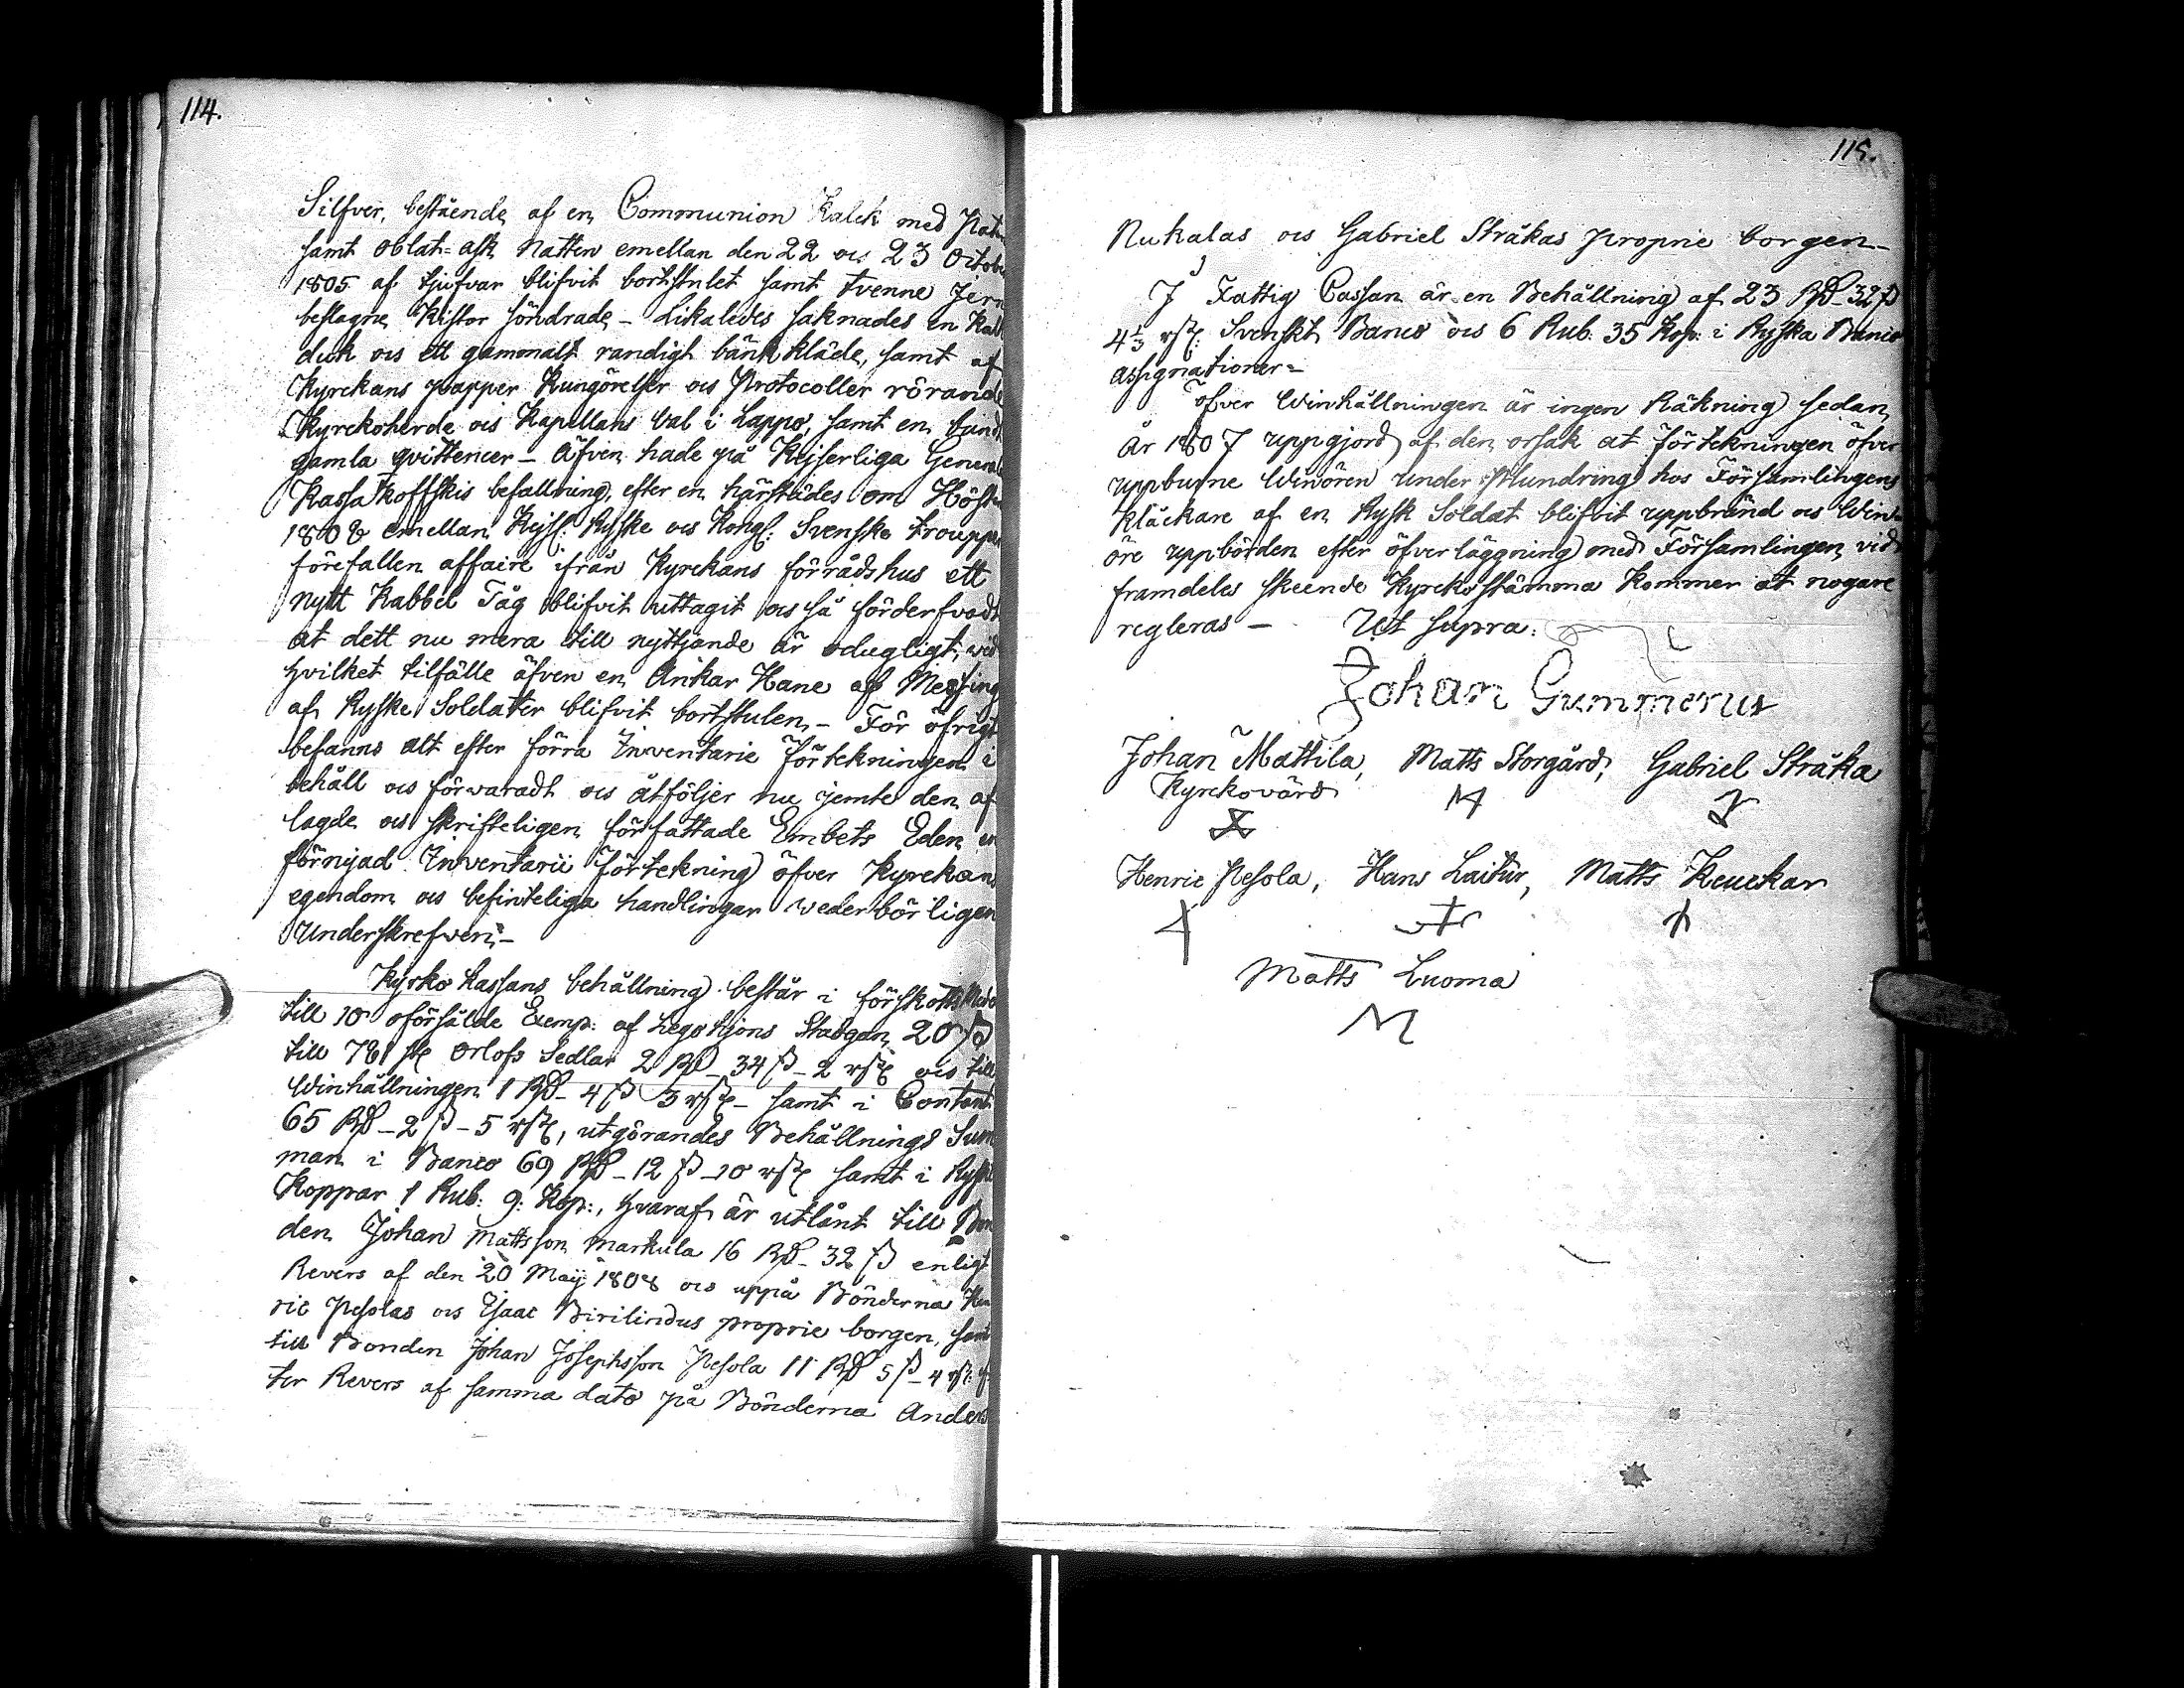 114.
Silfver, bestående af en Communion Kalck med Pate
samt Oblat=ask Natten emellan den 22 och 23 Octobr
1805 af tjufvar blifvit bortstulet samt tvenne Jern
beslagne Kistor söndrade – Likaledes saknades en Kalk
duk och ett gammalt randigt bänkkläde, samt af
Kyrckans papper Kungörelser och Protocoller rörande
Kyrckoherde och Kapellans val i Lappo, samt en bundt
gamla qvittencer – Äfven hade på Kejserliga General
Kassatkoffskis befallning, efter en härstädes om Hösten
1808 emellan Kejs: Ryske och Kongl: Svenske trouppar
förefallen affaire ifrån Kyrckans förrådshus ett
nytt Kabbel Tåg blifvit uttagit och så förderfvadt
at dett nu mera till nyttjande är odugligt, wid
hvilket tilfälle äfven en Ankar Hane af Messing
af Ryske Soldater blifvit bortstulen – För öfrigt
befanns alt efter förra Inventarie Förtekningen i
behåll och förwaradt och åtföljer nu jemte den af
lagde och skrifteligen författade Embets Eden en
förnyad Inventarii Förtekning öfver Kyrckans
egendom och befinteliga handlingar wederbörligen
Underskrefven –
Kyrko Kassans behållning består i förskotts Medel
till 10 oförsålde Exemp: af Legohjons Stadgan 20 ß
till 781 st Orlofs Sedlar 2 Rd – 34 ß – 2 rst och till
Winhållningen 1 Rd – 4 ß 3 rst – samt i Contant
65 Rd – 2 ß – 5 rst, utgörandes Behållnings Sum
man i Banco 69 Rd – 12 ß – 10 rst samt i Ryska
Koppar 1 Rub: 9: Kop:, hvaraf är utlånt till Bon
den Johan Mattsson Markula 16 Rd – 32 ß enligt
Revers af den 20 Maij 1808 och uppå Bönderna Hen
ric Pesolas och Isaac Birilindus proprie borgen, samt
till Bonden Johan Josephsson Pesola 11 Rd 5 ß – 4 rst ef
ter Revers af samma dato på Bönderna Anders
115.
Rukalas och Gabriel Stråkas proprie borgen –
I Fattig Cassan är en Behållning af 23 Rd – 32 ß
4⅓ rst: Svenskt Banco och 6 Rub. 35 Kop: i Ryska Banco
assignationer =
Öfver Winhållningen är ingen Räkning sedan
år 1807 uppgjord af den orsak at Förtekningen öfver
uppburne Winören under plundring hos Församlingens
Kläckare af en Rysk Soldat blifvit uppbränd och Win=
öre uppbörden efter öfverläggning med Församlingen vid
framdeles skeende Kyrckostämma Kommer at nogare
regleras – Ut supra:
Johan Gummerus
Johan Mattila, Matts Storgård, Gabriel Stråka
Kyrckovärd
Henric Pesola, Hans Laitur, Matts Keuckar
Matts Luoma